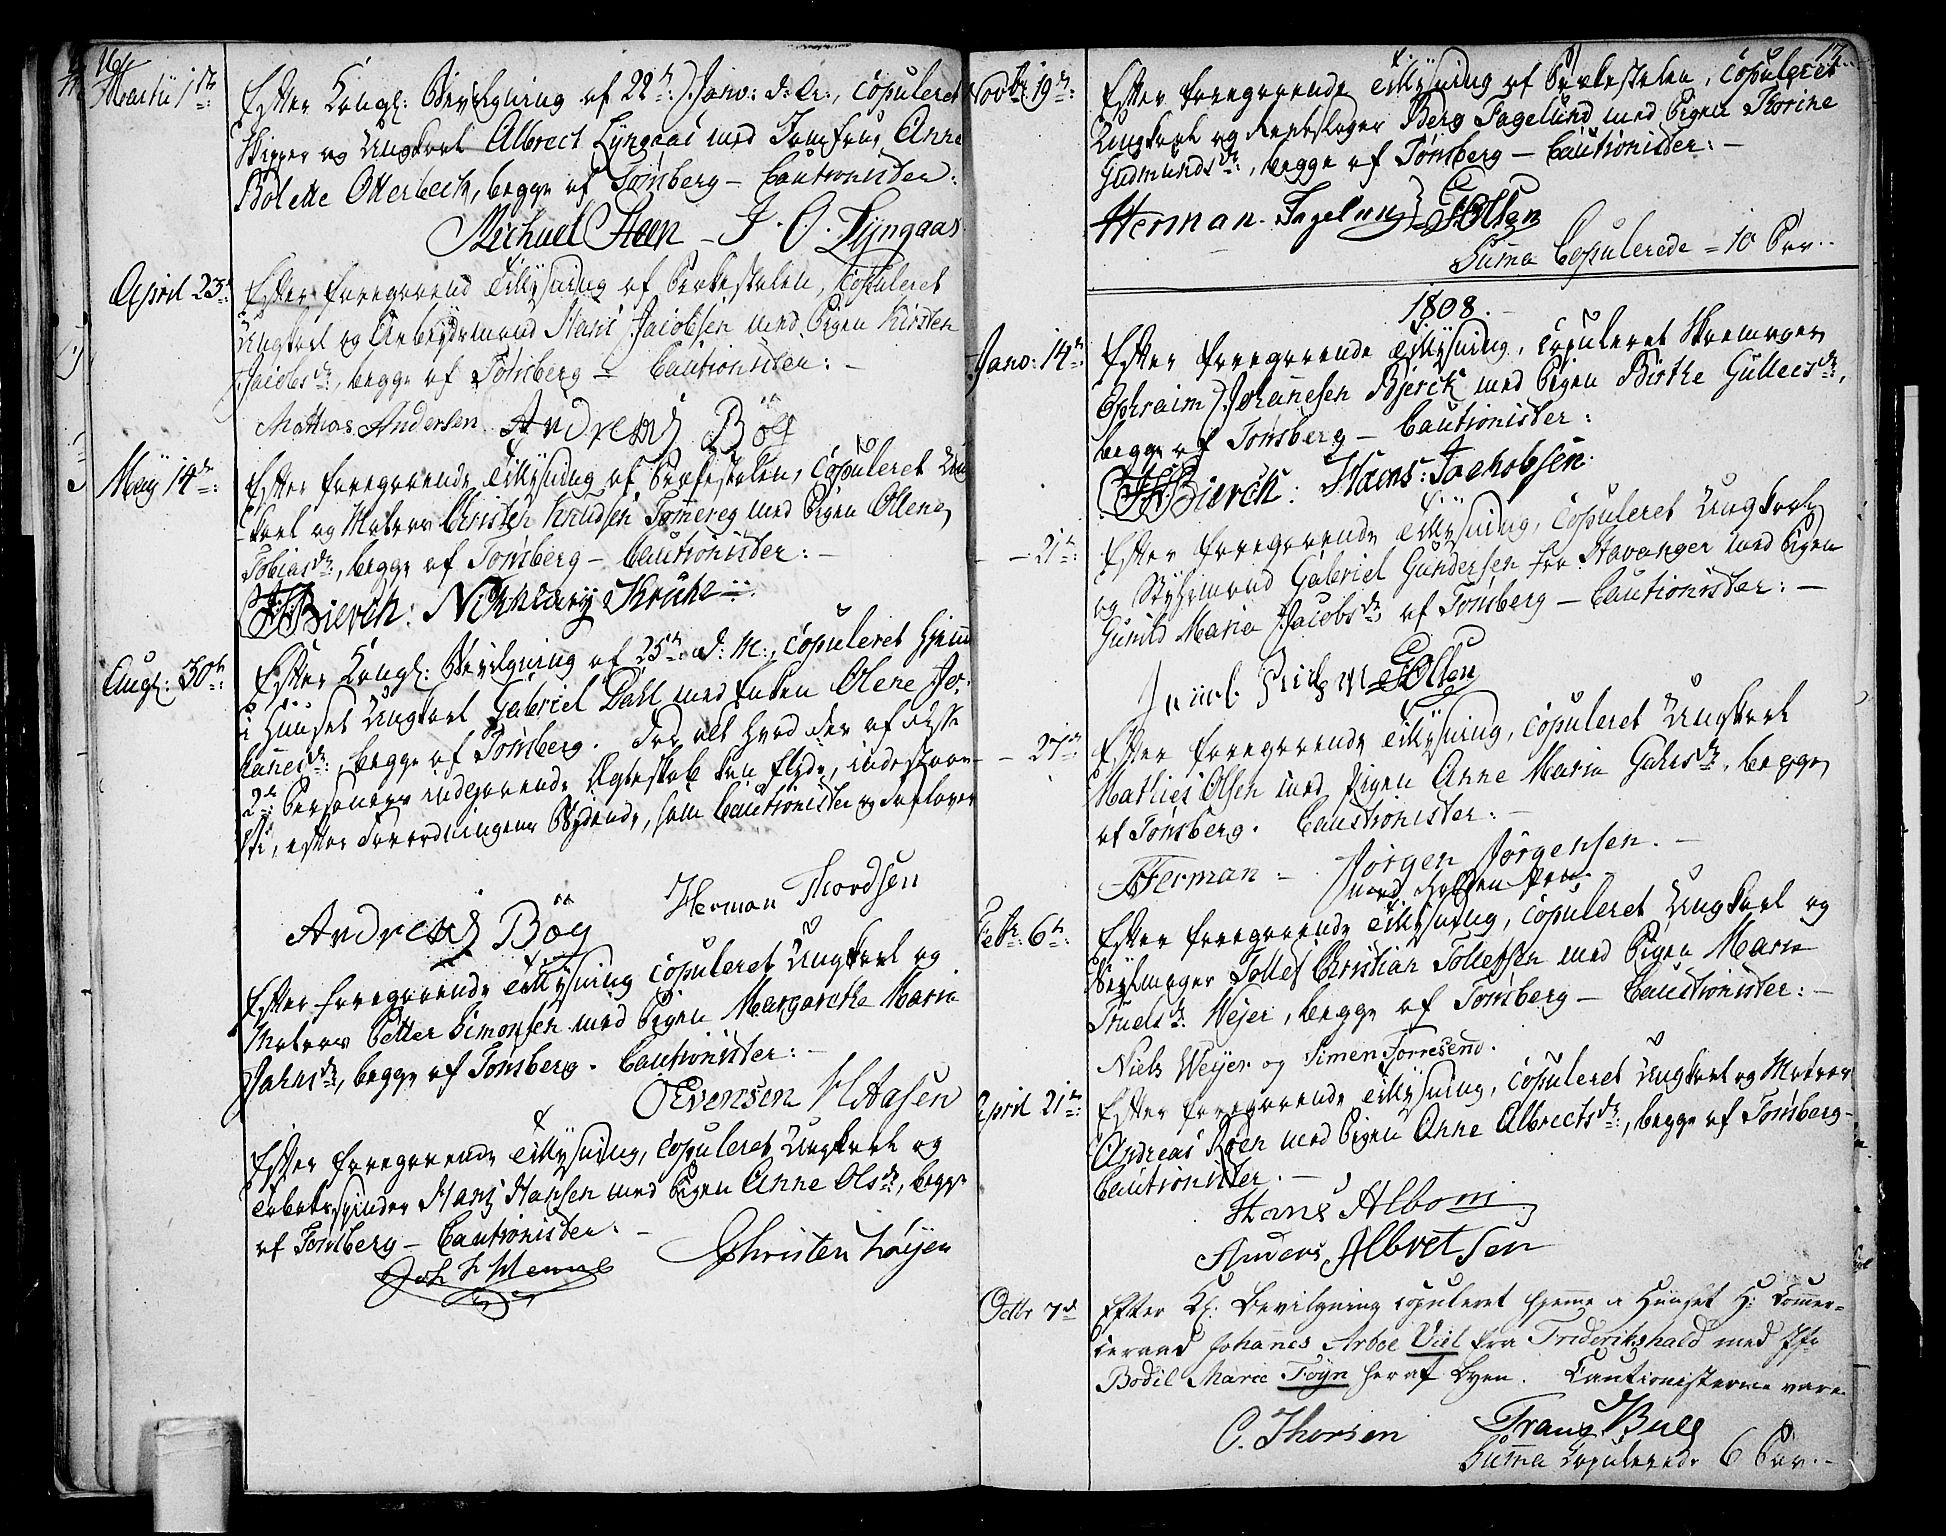 16.
Martii 17de:
Efter Kongl: Bevilgning af 22de: Janv: d: A:, copuleret
Skipper og Ungkarl Albrect Lyngaas med Jomfrue Anne
Bolette Otterbeck, begge af Tönsberg – Cautionister:
Michael Steen – J. O. Lyngaas
April 23d
Efter foregaaend Tillysning af Prækestolen, Copuleret
Ungkarl og Arbeydsmand Hans Jacobsen med Pigen Kirsten
Jacobsdr:, begge af Tönsberg – Cautionister: –
Mathias Andersen Andreas Bög
Maÿ 14de:
Efter foregaaende Tillysning af Prækestolen, Copuleret Ung
karl og Matros Christen Knudsen Tömereg med Pigen Ollena
Tobiasdr:, begge af Tönsberg – Cautionister: –
Bierch: Kruhe
Augl: 30te:
Efter Kongl: Bevilgning af 25de d: M:, copuleret hjemme
i Huuset Ungkarl Gabriel Dahl med Enken Olene Jo-
hanesdr:, begge af Tönsberg. For alt hvad der af disse
2de: Personers indgaaende Ægteskab kan flyde, indestaae
vi, efter Forordningens Bydende, som Cautionister og Forlovere
Andreas Bög Herman Thordsen
Efter foregaaende Tillysning copuleret Ungkarl og
Matros Petter Simonsen med Pigen Margarethe Maria
Jahnsdr:, begge af Tönsberg. Cautionister: –
Evensen H Aasen
Efter foregaaende Tillysning, copuleret Ungkarl og
Tobaksspinder Hans Hansen med Pigen Anne Olsdr:, begge
af Tönsberg – Cautionister: –
Christen Löijen
17.
Novbr 19de:
Efter foregaaende Tillysning af Prækestolen, copuleret
Ungkarl og Rebslager Berg Fagelund med Pigen Thorine
Gudmundsdr:, begge af Tönsberg – Cautionister: –
Herman Fagelund Ollsen
Suma Copulerede = 10 Par..
1808.
Janv: 14de
Efter foregaaende Tillysning, copuleret Skomager
Ephraim Johanesen Bjerck med Pigen Birthe Gullersdr:,
begge af Tönsberg – Cautionister:
Bierck: Hans: Jachobsen.
– 21de:
Efter foregaaende Tillysning, copuleret Ungkarl
og Styhrmand Gabriel Gundersen fra Stavanger med Pigen
Gunild Maria Jacobsdr: af Tönsberg – Cautionister: –
Ollsen
– 27de
Efter foregaaende Tillysning, copuleret Ungkarl
Mathies Olsen med Pigen Anne Maria Gahrsdr:, begge
af Tönsberg. Cautionister: –
Herman – Jörgen Jörgensen. –
med holden Pen
Febr: 6te:
Efter foregaaende Tillysning, copuleret Ungkarl og
Seylmager Tollef Christian Tollefsen med Pigen Maren
Truelsdr: Wejer, begge af Tönsberg – Cautionister: –
Niels Weyer og Simen Torresend.
April 21de:
Efter foregaaende Tillysning, copuleret Ungkarl og Matros
Andreas Roen med Pigen Anne Albrectsdr:, begge af Tönsberg –
Cautionister. –
Hans Albom
Anders Albretsen
Octbr 7d
Efter Kl. Bevilgning copuleret hjemme i Huuset H: Comer-
ceraad Johannes Arboe Viel fra Friderikshald med Jfr
Bodil Marie Föyn her af Byen. Cautionisterne vare
C. Thorsen Frans Bull
Suma Copulerede 6 Par. –